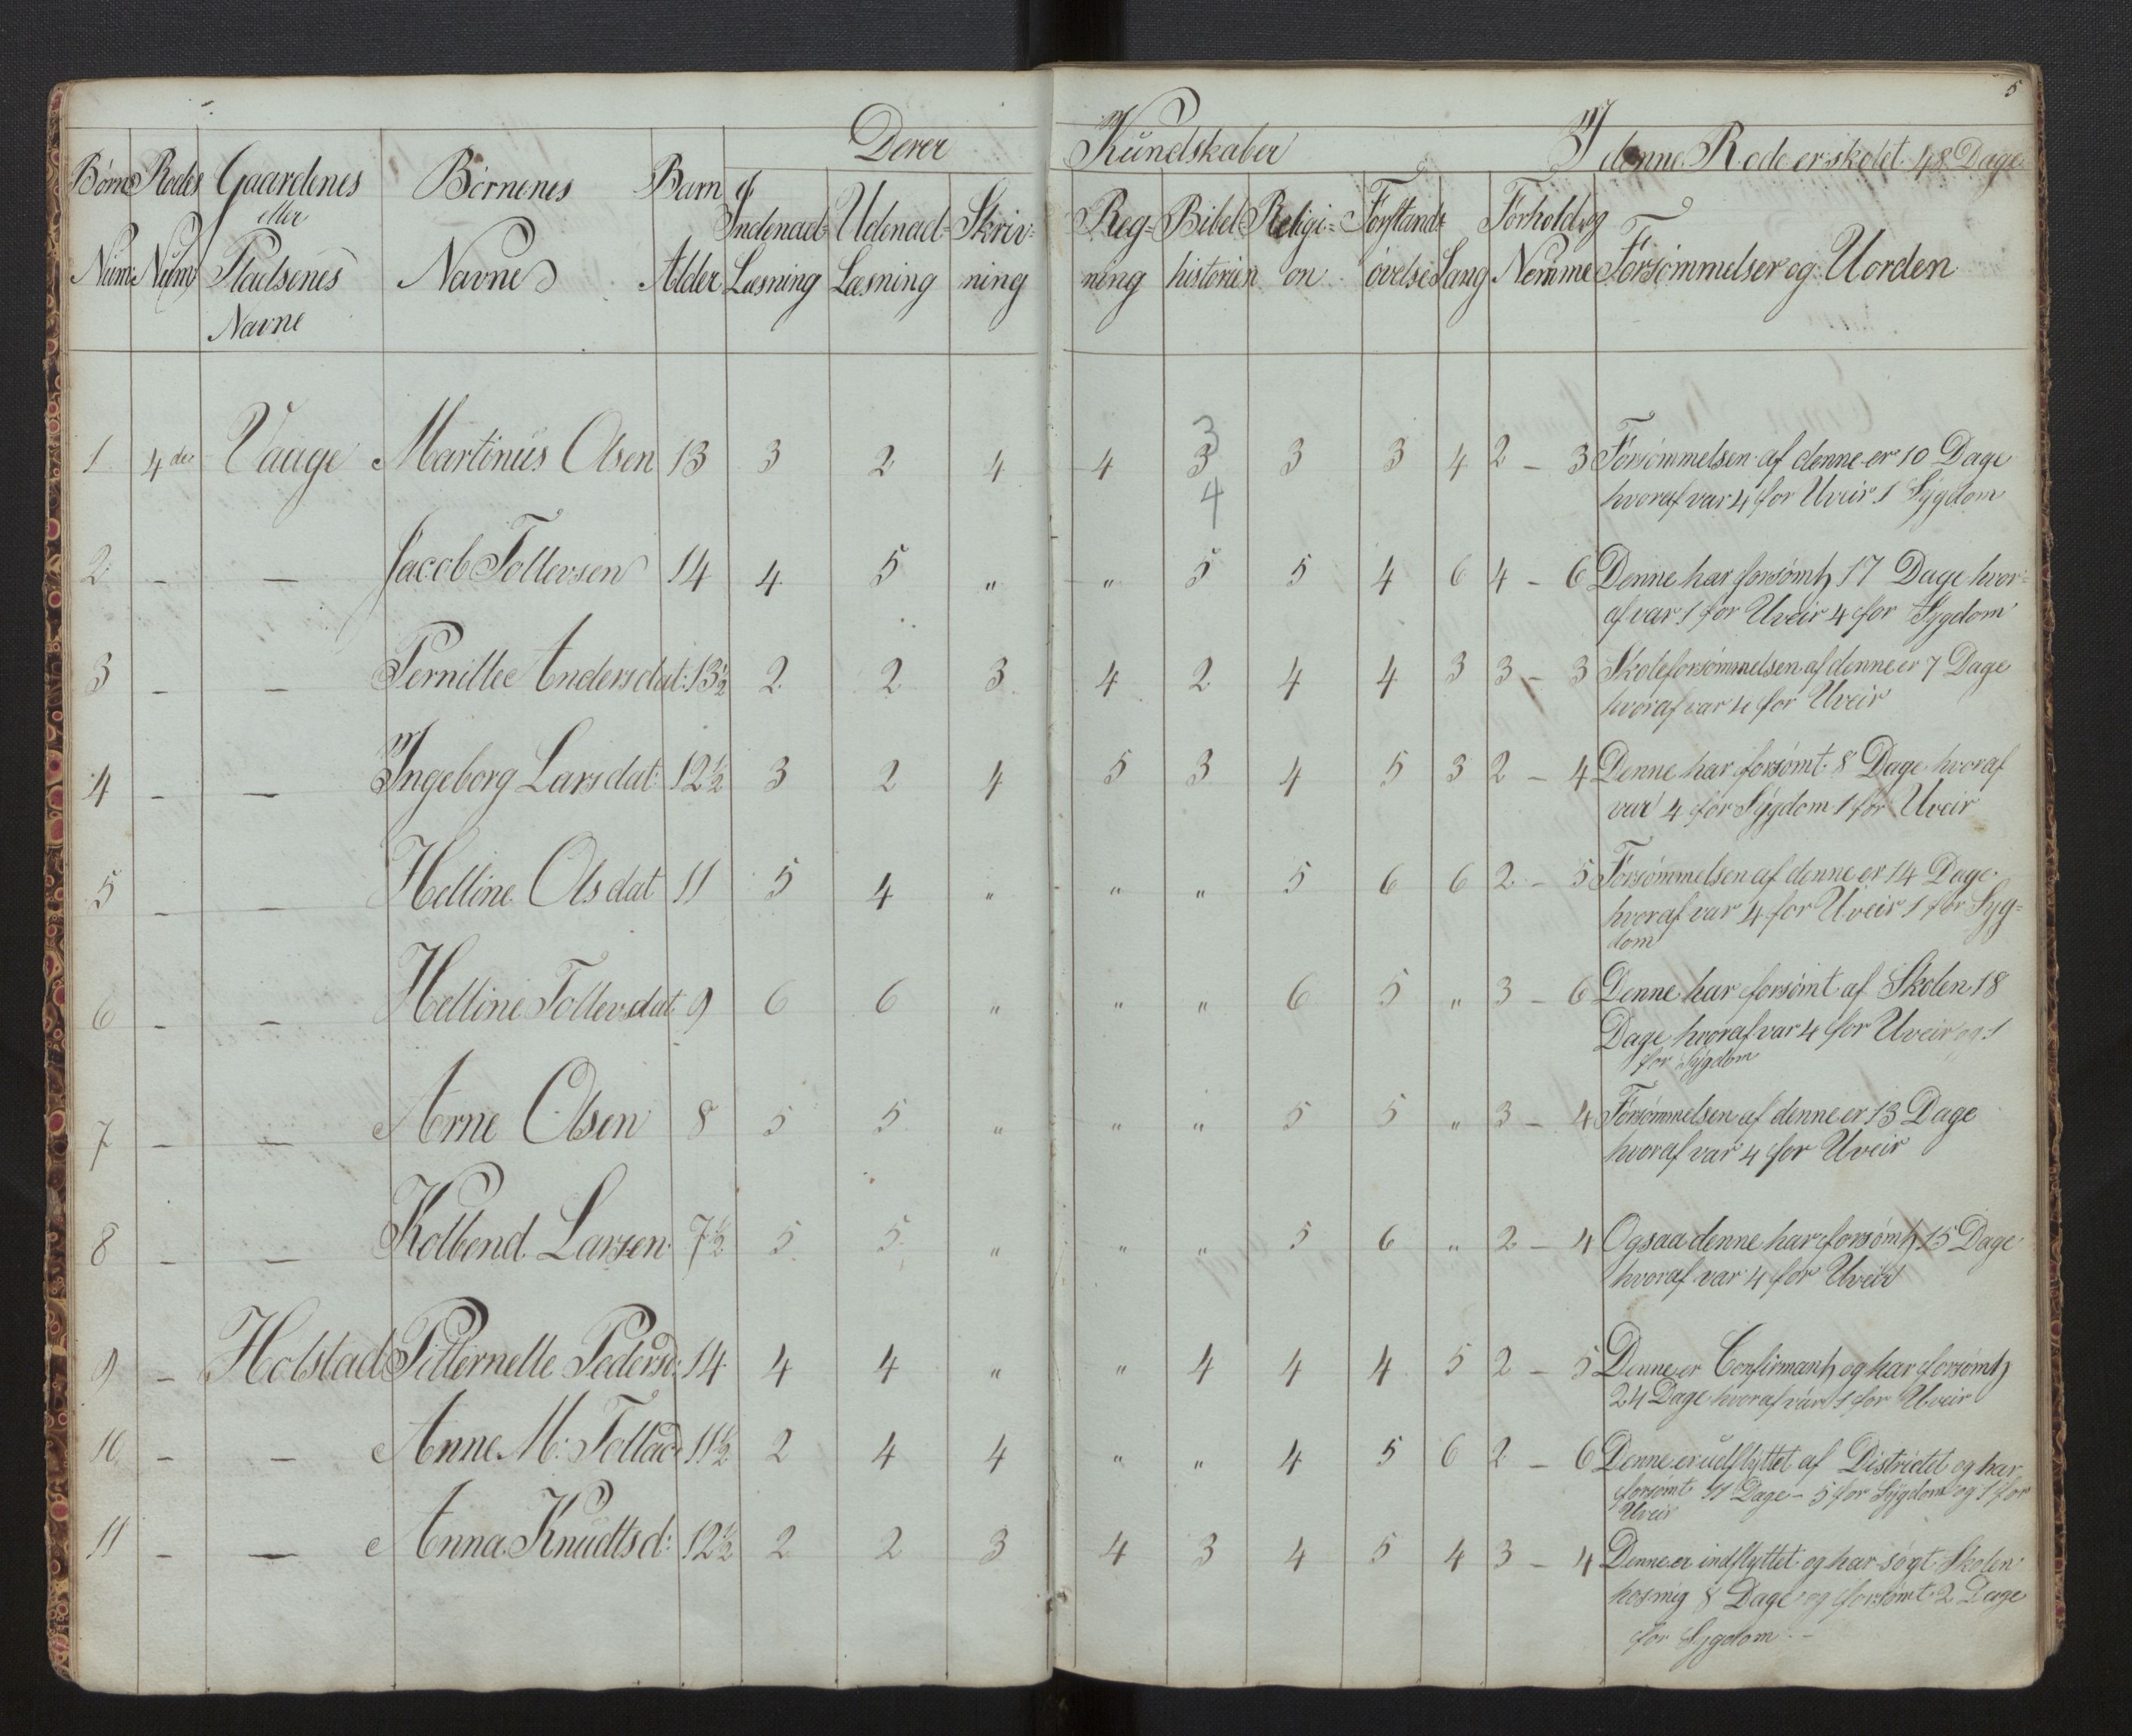 5
Derer Kundskaber
I denne Rode er skolet 48 Dage
Børns Rodes Gaardenes Børnenes Barn
eller
Num: Num: Pladsenes Navne Alder
Navne
Indenad- Udenad- Skriv- Reg- Bibel Religi- Forstands Forhold og
Læsning Læsning ning ning historien on øvelse Sang Nemme Forsømmelser og Uorden
3
1 4de Vaage Martinus Olsen 13 3 2 4 4 3 3 3 4 2 – 3 Forsømmelsen af denne er 10 Dage
4
hvoraf var 4 for Uveir 1 Sygdom
2 – – Jacob Tollevsen 14 4 5 " " 5 5 4 6 4 – 6 Denne har forsømt 17 Dage hvor-
af var 1 for Uveir 4 for Sygdom
3 – – Pernille Andersdat: 13½ 2 2 3 4 2 4 4 3 3 – 3 Skoleforsømmelsen af denne er 7 Dage
hvoraf var 4 for Uveir
4 – – Ingeborg Larsdat: 12½ 3 2 4 5 3 4 5 3 2 – 4 Denne har forsømt 8 Dage hvoraf
var 4 for Sygdom 1 for Uveir
5 – – Helline Olsdat 11 5 4 " " " 5 6 6 2 – 5 Forsømmelsen af denne er 14 Dage
hvoraf var 4 for Uveir 1 for Syg-
dom
6 – – Helline Tollevsdat 9 6 6 " " " 6 5 " 3 – 6 Denne har forsømt af Skolen 18
Dage hvoraf var 4 for Uveir og 1
for Sygdom
7 – – Arne Olsen 8 5 5 " " " 5 5 " 3 – 4 Forsømmelsen af denne er 13 Dage
hvoraf var 4 for Uveir
8 – – Kolbend Larsen 7½ 5 5 " " " 5 6 " 2 – 4 Ogsaa denne har forsømt 15 Dage
hvoraf var 4 for Uveir
9 – Holstad Pitternelle Pedersd: 14 4 4 " " 4 4 4 5 2 – 5 Denne er Confirmant og har forsømt
24 Dage hvoraf var 1 for Uveir
10 – – Anne M: Tollad: 11½ 2 4 4 " " 4 5 6 2 – 6 Denne er udflyttet af Districtet og har
forsømt 11 Dage – 5 for Sygdom og 1 for
Uveir
11 – – Anna Knudtsd: 12½ 2 2 3 4 3 4 5 4 3 – 4 Denne er indflyttet og har søgt Skolen
hos mig 8 Dage og forsømt 2 Dage
for Sygdom –